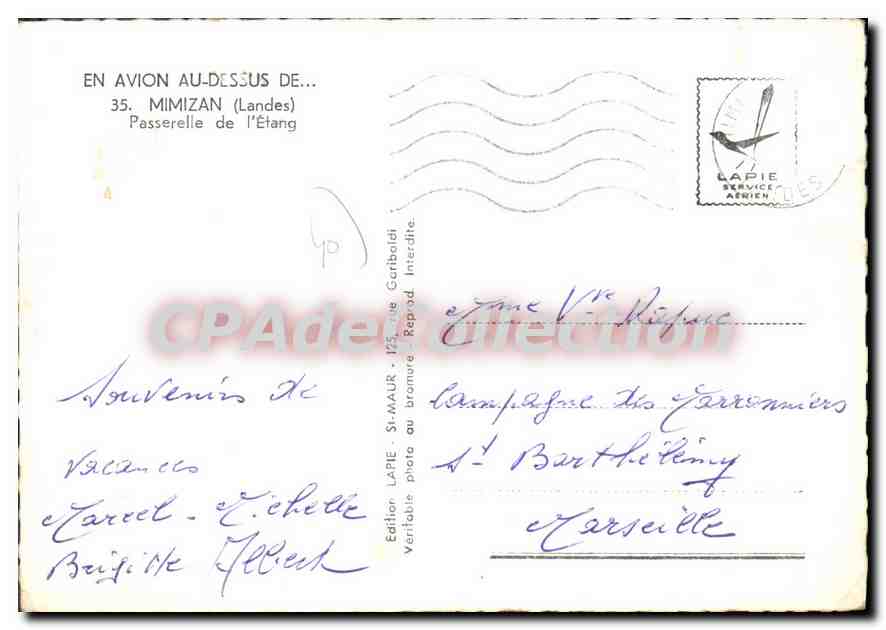 EN AVION AU-DESSUS DE...
35. MIMIZAN (Landes)
Passerelle de l'Étang
LAPIE
SERVICE
AÉRIEN
40
Édition LAPIE - St-MAUR - 125, rue Garibaldi
Véritable photo au bromure - Reprod. Interdite.
CPAdeCollection
Mme Vve
Campagne des Marronniers
St Barthélémy
Marseille
Souvenirs de
vacances
Marcel - Michelle
Brigitte Albert